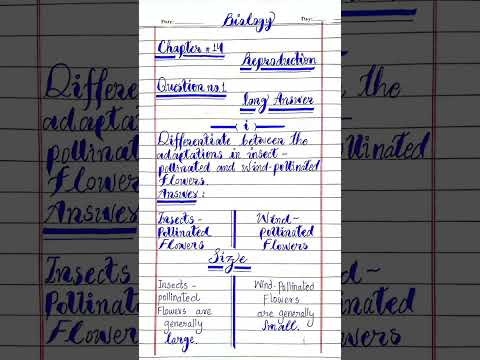 Date:
Biology
Day:
Chapter # 14
Reproduction
Question no. 1
long Answer
i
Differentiate between the
adaptations in insect-
pollinated and Wind-pollinated
Flowers.
Answer:
Insects-
Pollinated
Flowers
Wind-
pollinated
Flowers
Size
Insects-
pollinated
Flowers are
generally
large.
Wind-Pollinated
Flowers
are generally
Small.